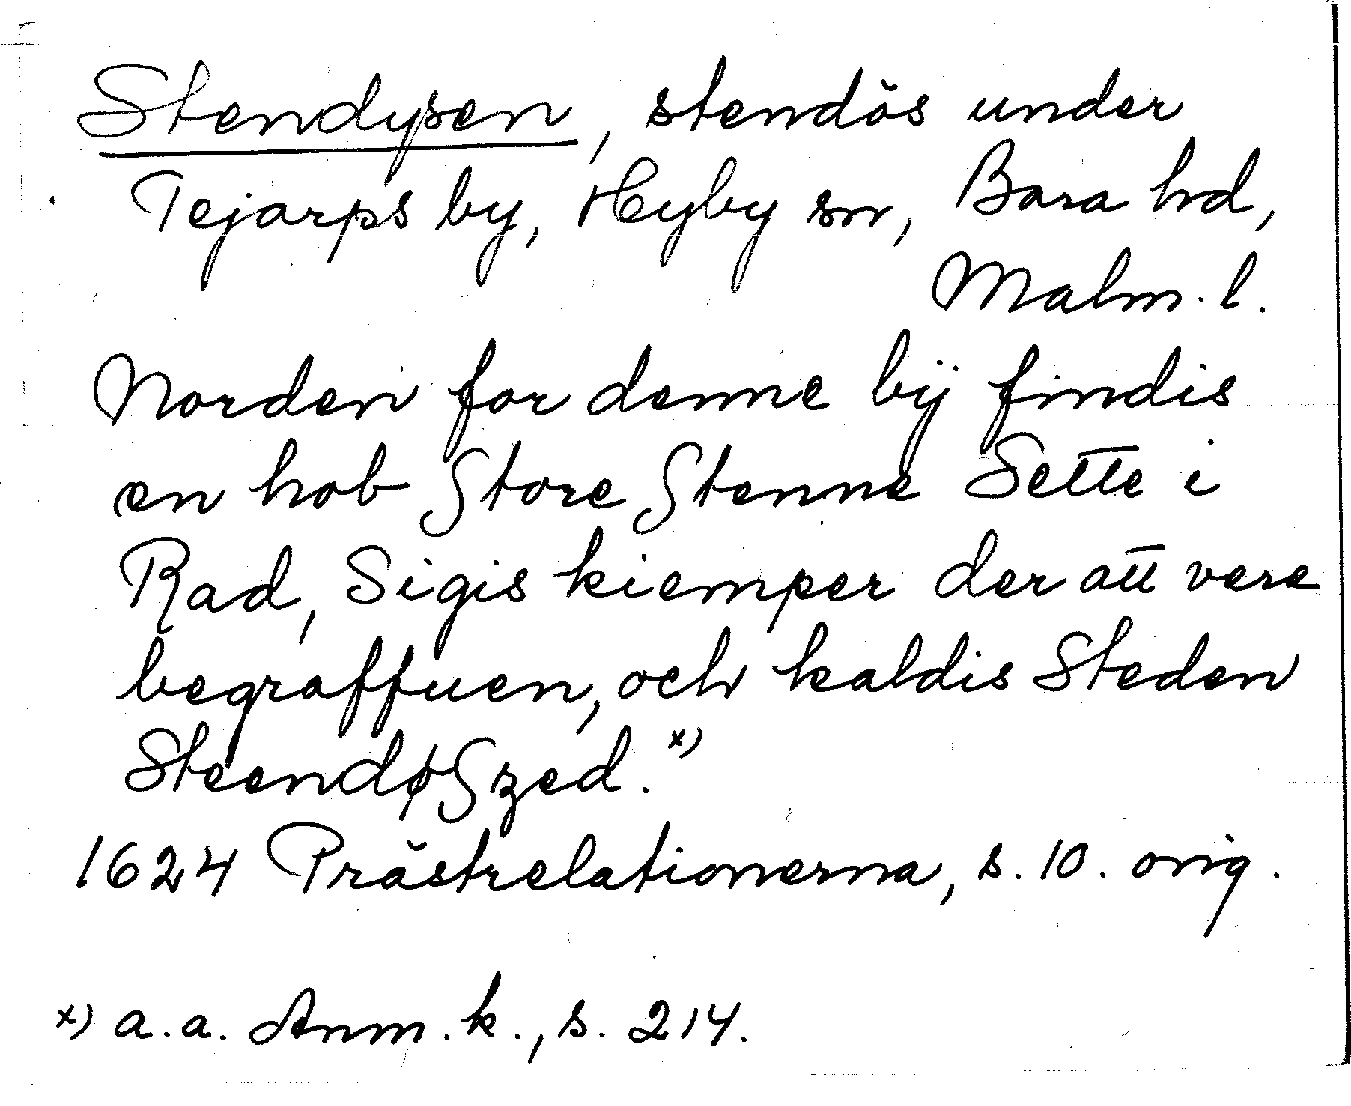 Stendysen, stendös under
Tejarps by, Hyby sn, Bara hd,
Malm. l.
Norden for denne bÿ findis
en hob Store Stenne Sette i
Rad, Sigis kiemper der att vere
begraffuen, och kaldis Steden
SteendøSzed. x)
1624 Prästrelationerna, s. 10. orig.
x) a. a. Anm. k., s. 214.